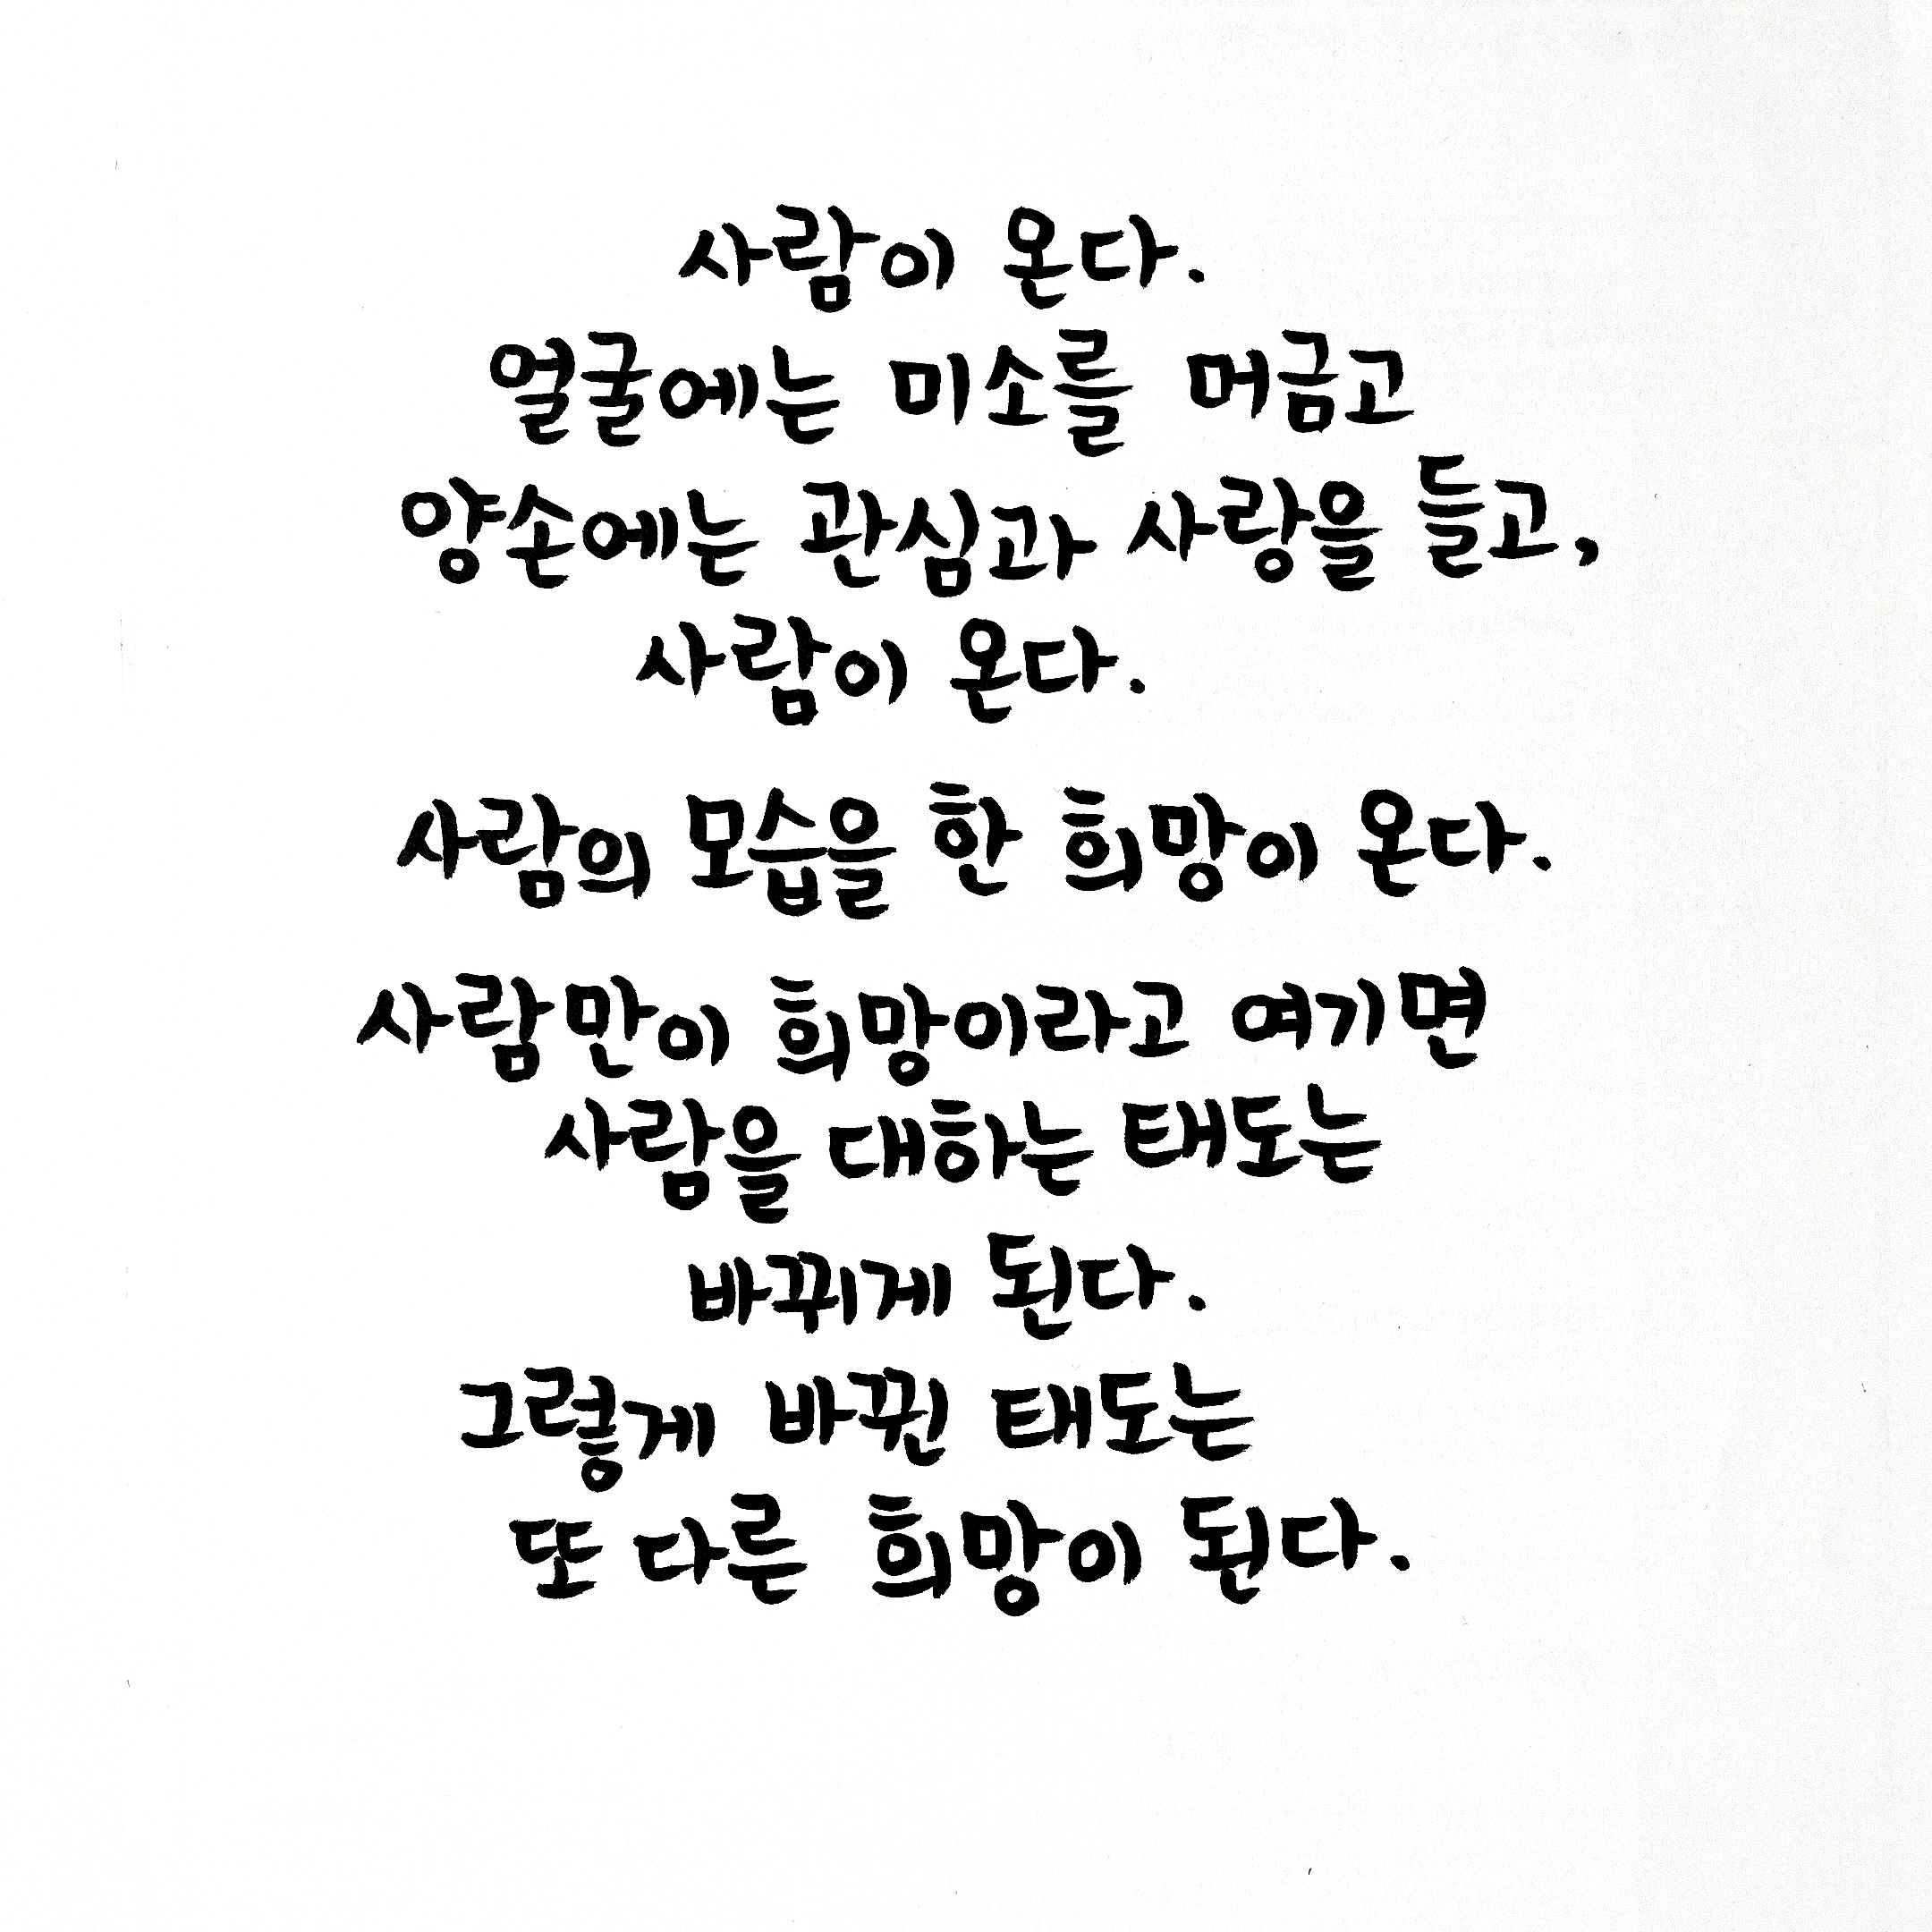 사람이 온다.
얼굴에는 미소를 머금고
양손에는 관심과 사랑을 들고,
사람이 온다.
사람의 모습을 한 희망이 온다.
사람만이 희망이라고 여기면
사람을 대하는 태도는
바뀌게 된다.
그렇게 바뀐 태도는
또 다른 희망이 된다.